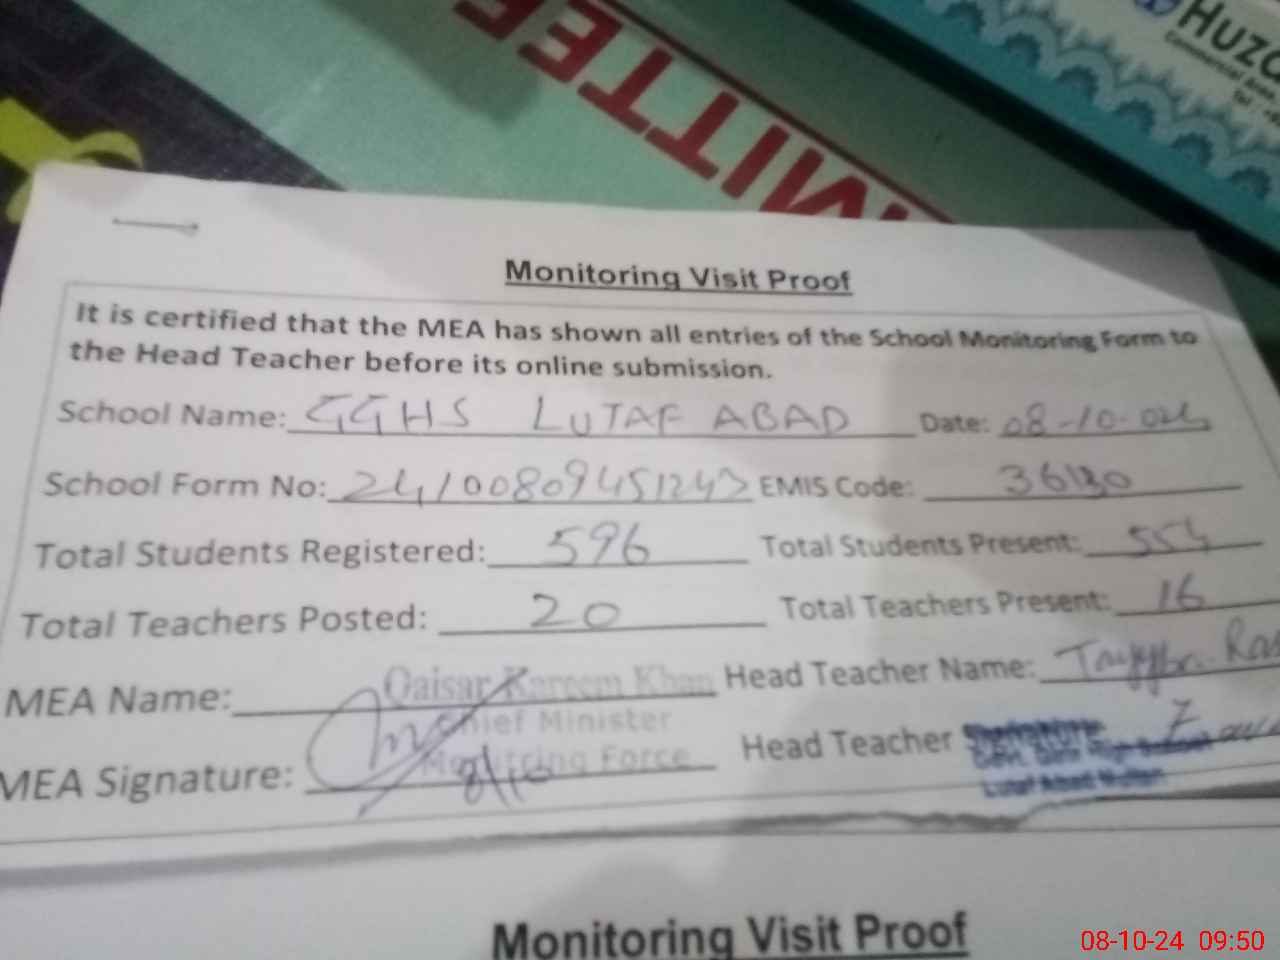 MITTEE
Huzo
Monitoring Visit Proof
It is certified that the MEA has shown all entries of the School Monitoring Form to
the Head Teacher before its online submission.
School Name: GGHS LUTAF ABAD Date: 08-10-024
School Form No: EMIS Code:
Total Students Registered: 596 Total Students Present: 554
Total Teachers Posted: 20 Total Teachers Present: 16
MEA Name: Qaisar Kareem Khan Head Teacher Name:
Chief Minister
MEA Signature: Monitring Force Head Teacher
8/10
Lutaf Abad Multan
Monitoring Visit Proof
08-10-24 09:50